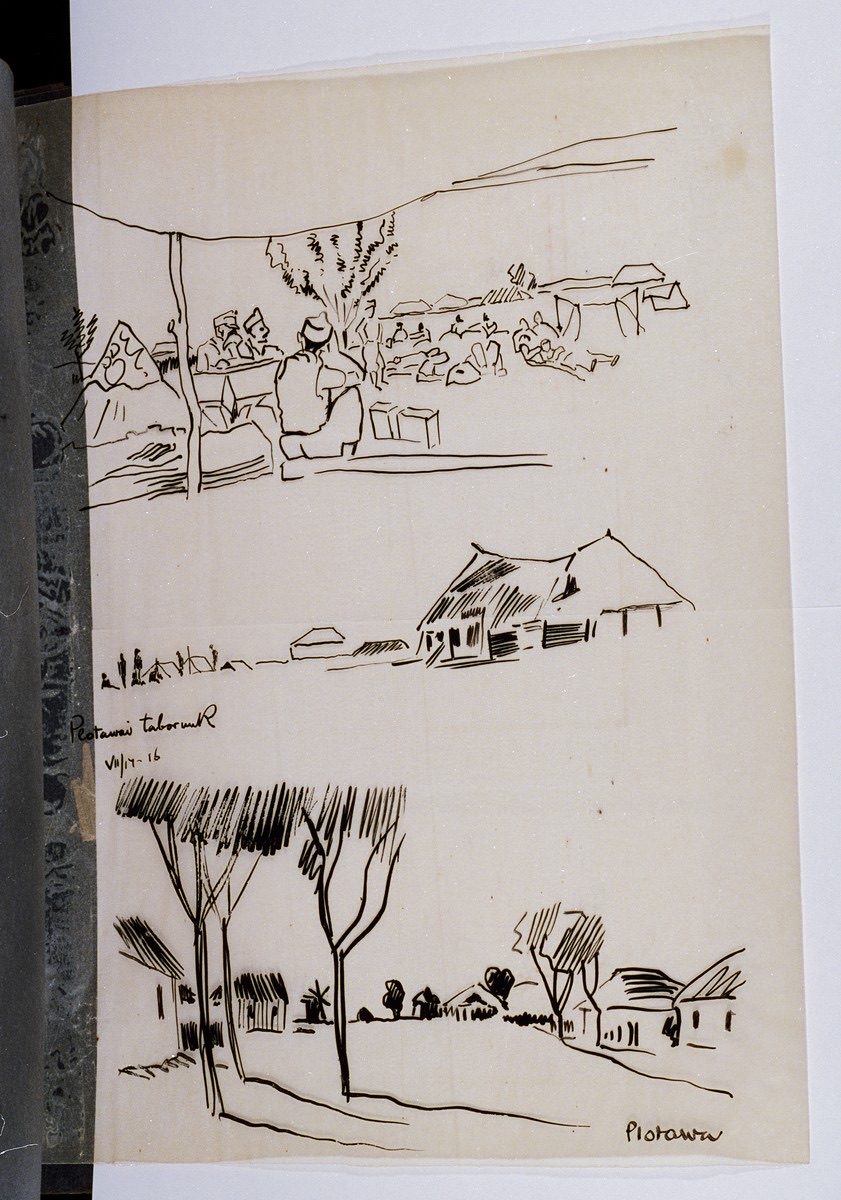 Plotawai táborunk
VII/17-16
Plotawa